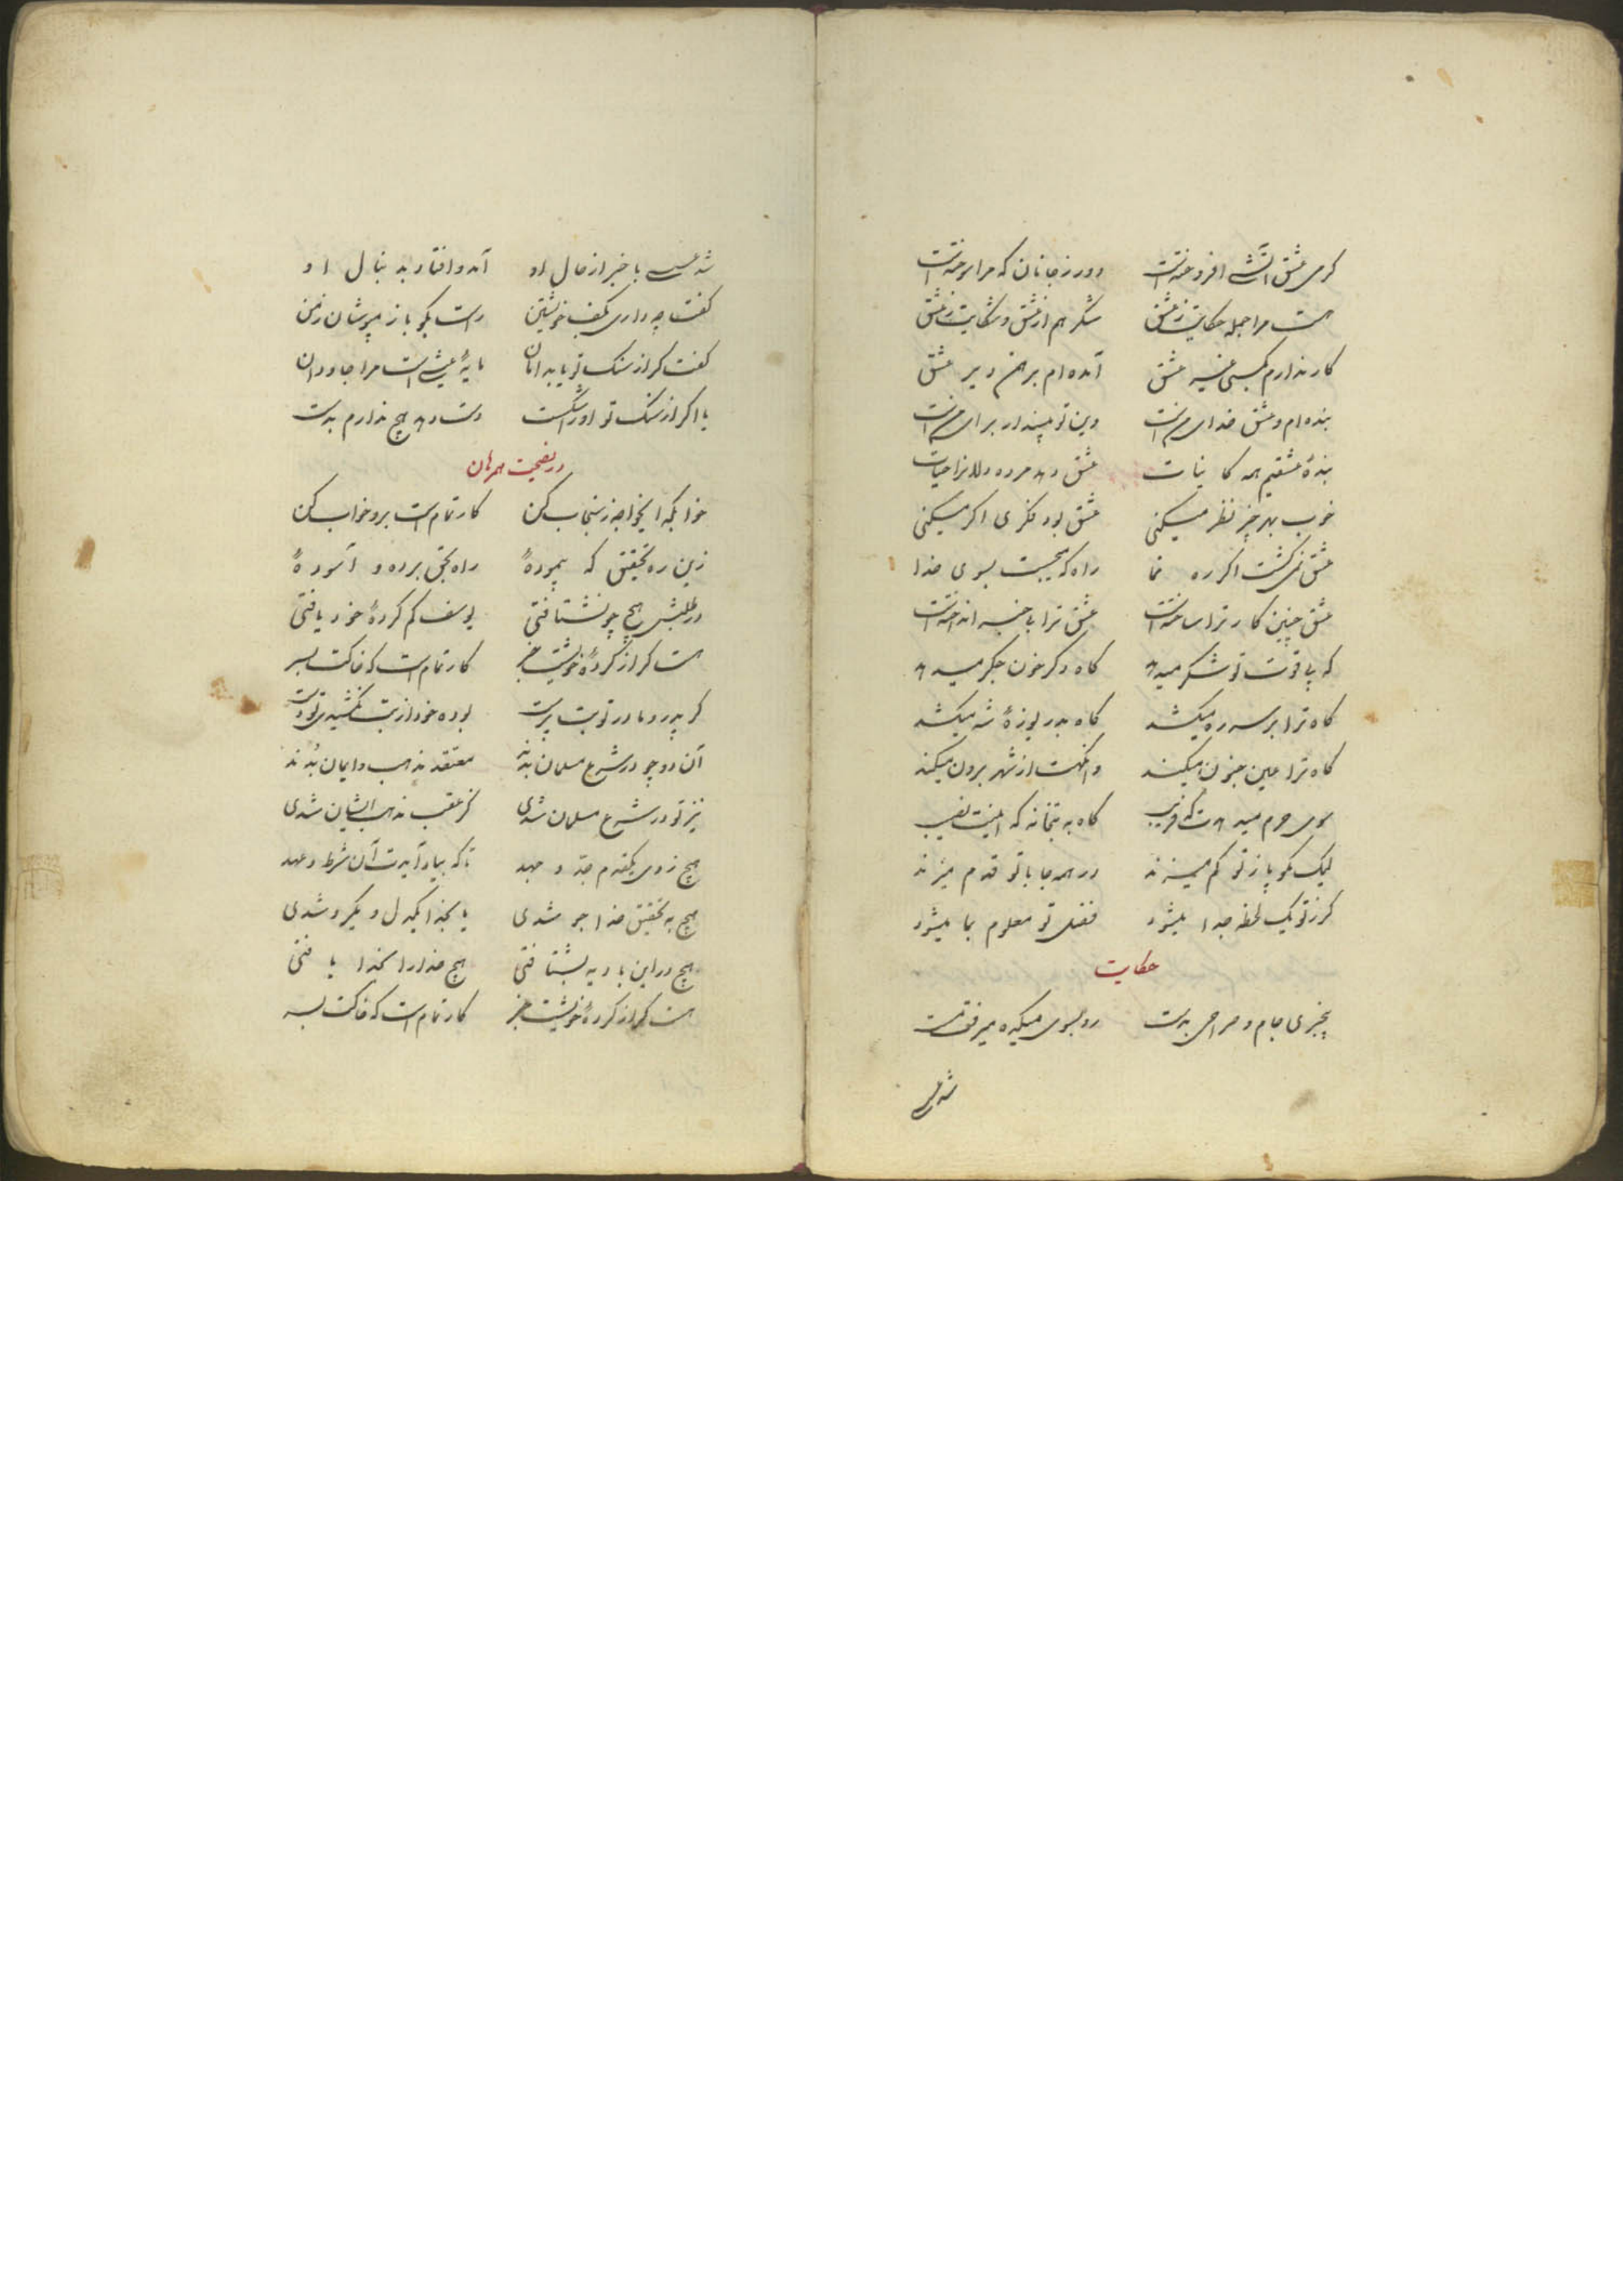 گرمی عشق آتشی افروختست دور ز جانان که مرا سوختست
هست مرا جمله حکایت ز عشق شکر هم از عشق و شکایت ز عشق
کار ندارم بکسی غیر عشق آمده‌ام برهمن دیر عشق
بنده‌ام و عشق خدای منست وین تو مپندار برای منست
بندهٔ عشقیم همه کاینات عشق دهد مرده دلانرا حیات
خوب بهر چیز نظر میکنی عشق بود فکری اگر میکنی
عشق نمی‌گشت اگر ره نما راه که می‌جست بسوی خدا
عشق چنین کار ترا ساختست عشق ترا با همه انداختست
که پی قوت تو شکر میدهد گاه دگر خون جگر میدهد
گاه ترا بر سر ره میکشد گاه بدریوزهٔ شه میکشد
گاه ترا عین جنون میکند وانگهت از شهر برون میکند
سوی حرم میبردت گه فریب گاه به بتخانه که اینت نصیب
لیک مگو پا ز تو کم میزند در همه جا با تو قدم میزند
گر ز تو یک لحظه جدا میشود فضل تو معلوم بما میشود
حکایت
بیخبری جام و صراحی بدست رو بسوی میکده میرفت مست
شد عسسی
شد عسسی با خبر از حال او آمد و افتاد بدنبال او
گفت چه داری بکف خویشتن راست بگو باز مپوشان ز من
گفت گر از سنگ تو یابد امان مایهٔ عیشی است مرا جاودان
یا اگر از سنگ تو او را شکست دست دهد هیچ ندارم بدست
در نصیحت همرهان
خوابگه ایخواجه ز سنجاب کن کار تمام است برو خواب کن
زین ره تحقیق که پیمودهٔ راه بحق برده و آسودهٔ
در طلبش هیچ چو نشتافتی یوسف گم کردهٔ خود یافتی
هست گر از کردهٔ خویشت خبر کار تمام است که خاکت بسر
گر پدر و مادر تو بت پرست بوده خود از بت نکشیدی تو دست
آن دو چو در شرع مسلمان بدند معتقد مذهب و ایمان بدند
نیز تو در شرع مسلمان شدی کز عقب مذهب ایشان شدی
هیچ زدی یکقدم جد و جهد تا که بیاد آیدت آن شرط و عهد
هیچ به تحقیق خدا جو شدی یا بخدا یکدل و یکرو شدی
هیچ در این بادیه بشتافتی هیچ خدا را بخدا یافتی
هست گر از کردهٔ خویشت خبر کار تمام است که خاکت بسر